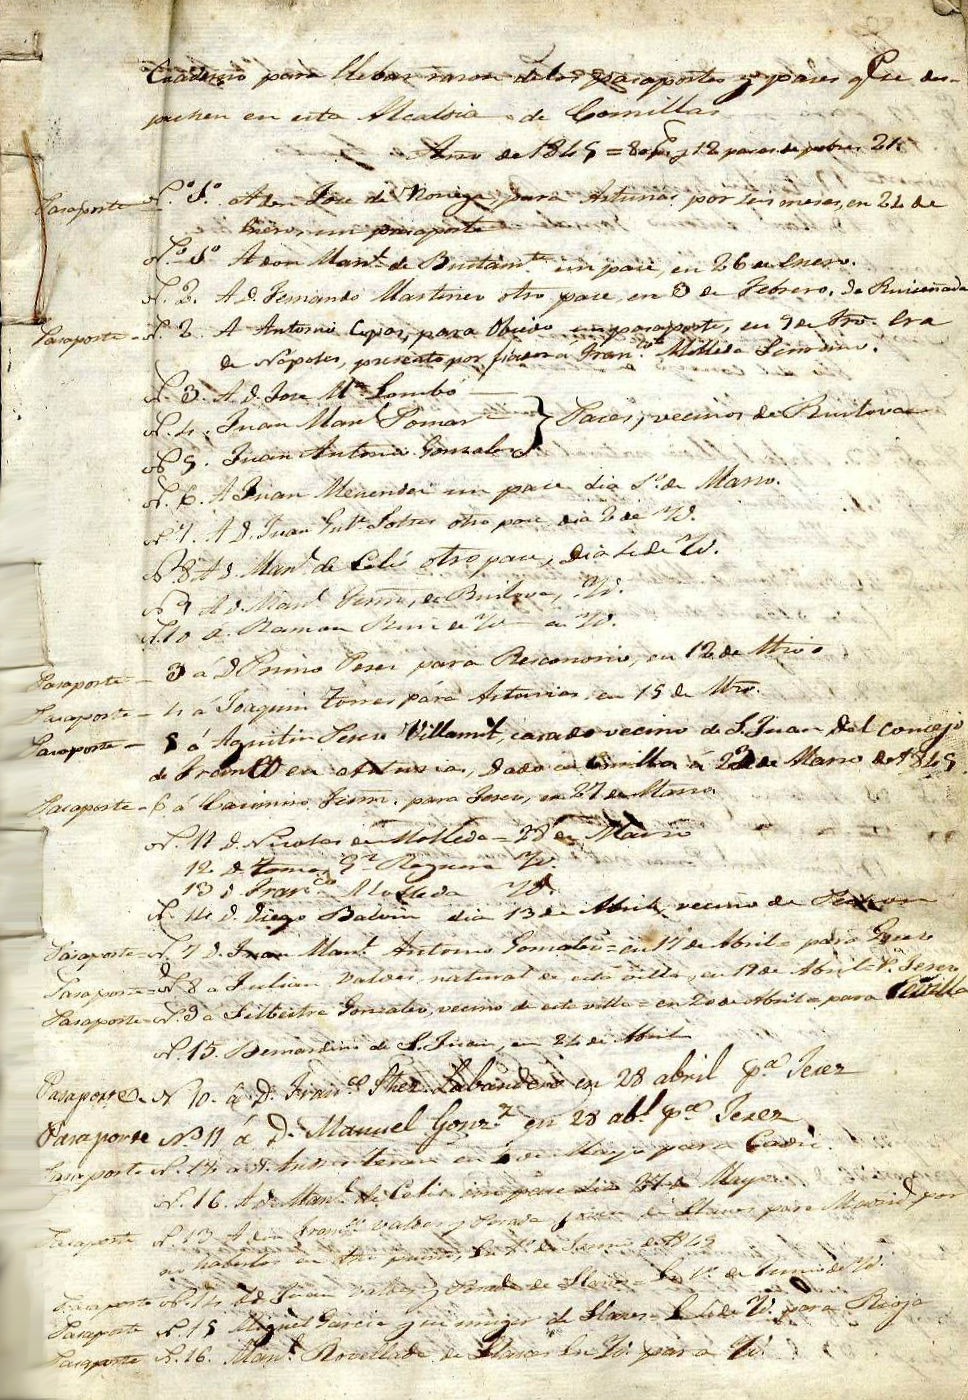 Cuaderno para llebar razon de los pasaportes y pases que des-
pachen en esta Alcaldia de Comillas
Año de 1845 = 8 12 pases de pobres 21
Pasaporte N.º 1.º A don Jose de Noriega, para Asturias por seis meses, en 24 de
Enero, un pasaporte
N.º 1.º A don Man.l de Bustam.te un pase, en 26 de Enero.
N. 2. A d. Fernando Martinez otro pase, en 3 de Febrero, de Ruiseñada
Pasaporte - N. 2. A Antonio para Obiedo un pasaporte, en 9 de Era
de Napoles, presento por fiador a Fran.co Molleda
N. 3. A d. Jose M.a Lombó
N. 4. Juan Man.l Pomar } Pases, vecinos de Ruilova
N. 5. Juan Antonio Gonzalez
N. 6. A Juan Menendez un pase dia 1.º de Marzo.
N. 7. A D. Juan otro pase dia 2 de Yd.
N. 8 A d. Man.l de Celis otro pase, dia 4 de Yd.
N. 9 A d. Man.l de Ruilova, Yd.
N. 10 á Ramon Ruiz de Yd - en Yd.
Pasaporte - 3 á D Primo Perez para en 12 de
Pasaporte - 4 á Joaquin Torres para Asturias, en 15 de
Pasaporte - 5 á Agustin Villamil, casado vecino de S. Juan del concejo
de Franco en Asturias, dado en Comillas á 23 de Marzo de 1845.
Pasaporte - 6 á Casimiro para Jerez, en 27 de Marzo
N. 11 D. Nicolas de Molleda = 28 de Marzo
12 d. Tomas Yd.
13 d. Fran.co Molleda Yd.
N. 14 d. Diego Balbin dia 13 de Abril, vecino de
Pasaporte = N. 7 d. Juan Man.l Antonio Gonzalez = en 17 de Abril = para Jerez
Pasaporte = N. 8 a Julian Valdes natural de esta villa, en 19 de Abril p.a Jerez
Pasaporte = N. 9 a Silbestre Gonzalez, vecino de esta villa = en 20 de Abril = para Sevilla
N. 15. Bernardino de S. Juan, en 24 de Abril
Pasaporte - N 10. á D. Fran.co Labandero en 28 abril p.a Jerez
Pasaporte N.º 11 á D. Manuel Gonz.z en 28 ab.l p.a Jerez
Pasaporte N. 12 á d. en de Mayo para Cadiz
N. 16. A d. Man.l de Celis un pase dia de Mayo
Pasaporte N. 13 A don Fran.co Valdes y de Llanes para Madrid por
no haberlos en tres en 1.º de Junio de 1845
Pasaporte N. 14 D. Juan Valdes y de Llanes = En 1.º de Junio de Yd.
Pasaporte N. 15 Miguel Garcia y su muger de Llanes = En de Yd. para Rioja
Pasaporte N. 16. Man.l de Llanes En Yd. para Yd.